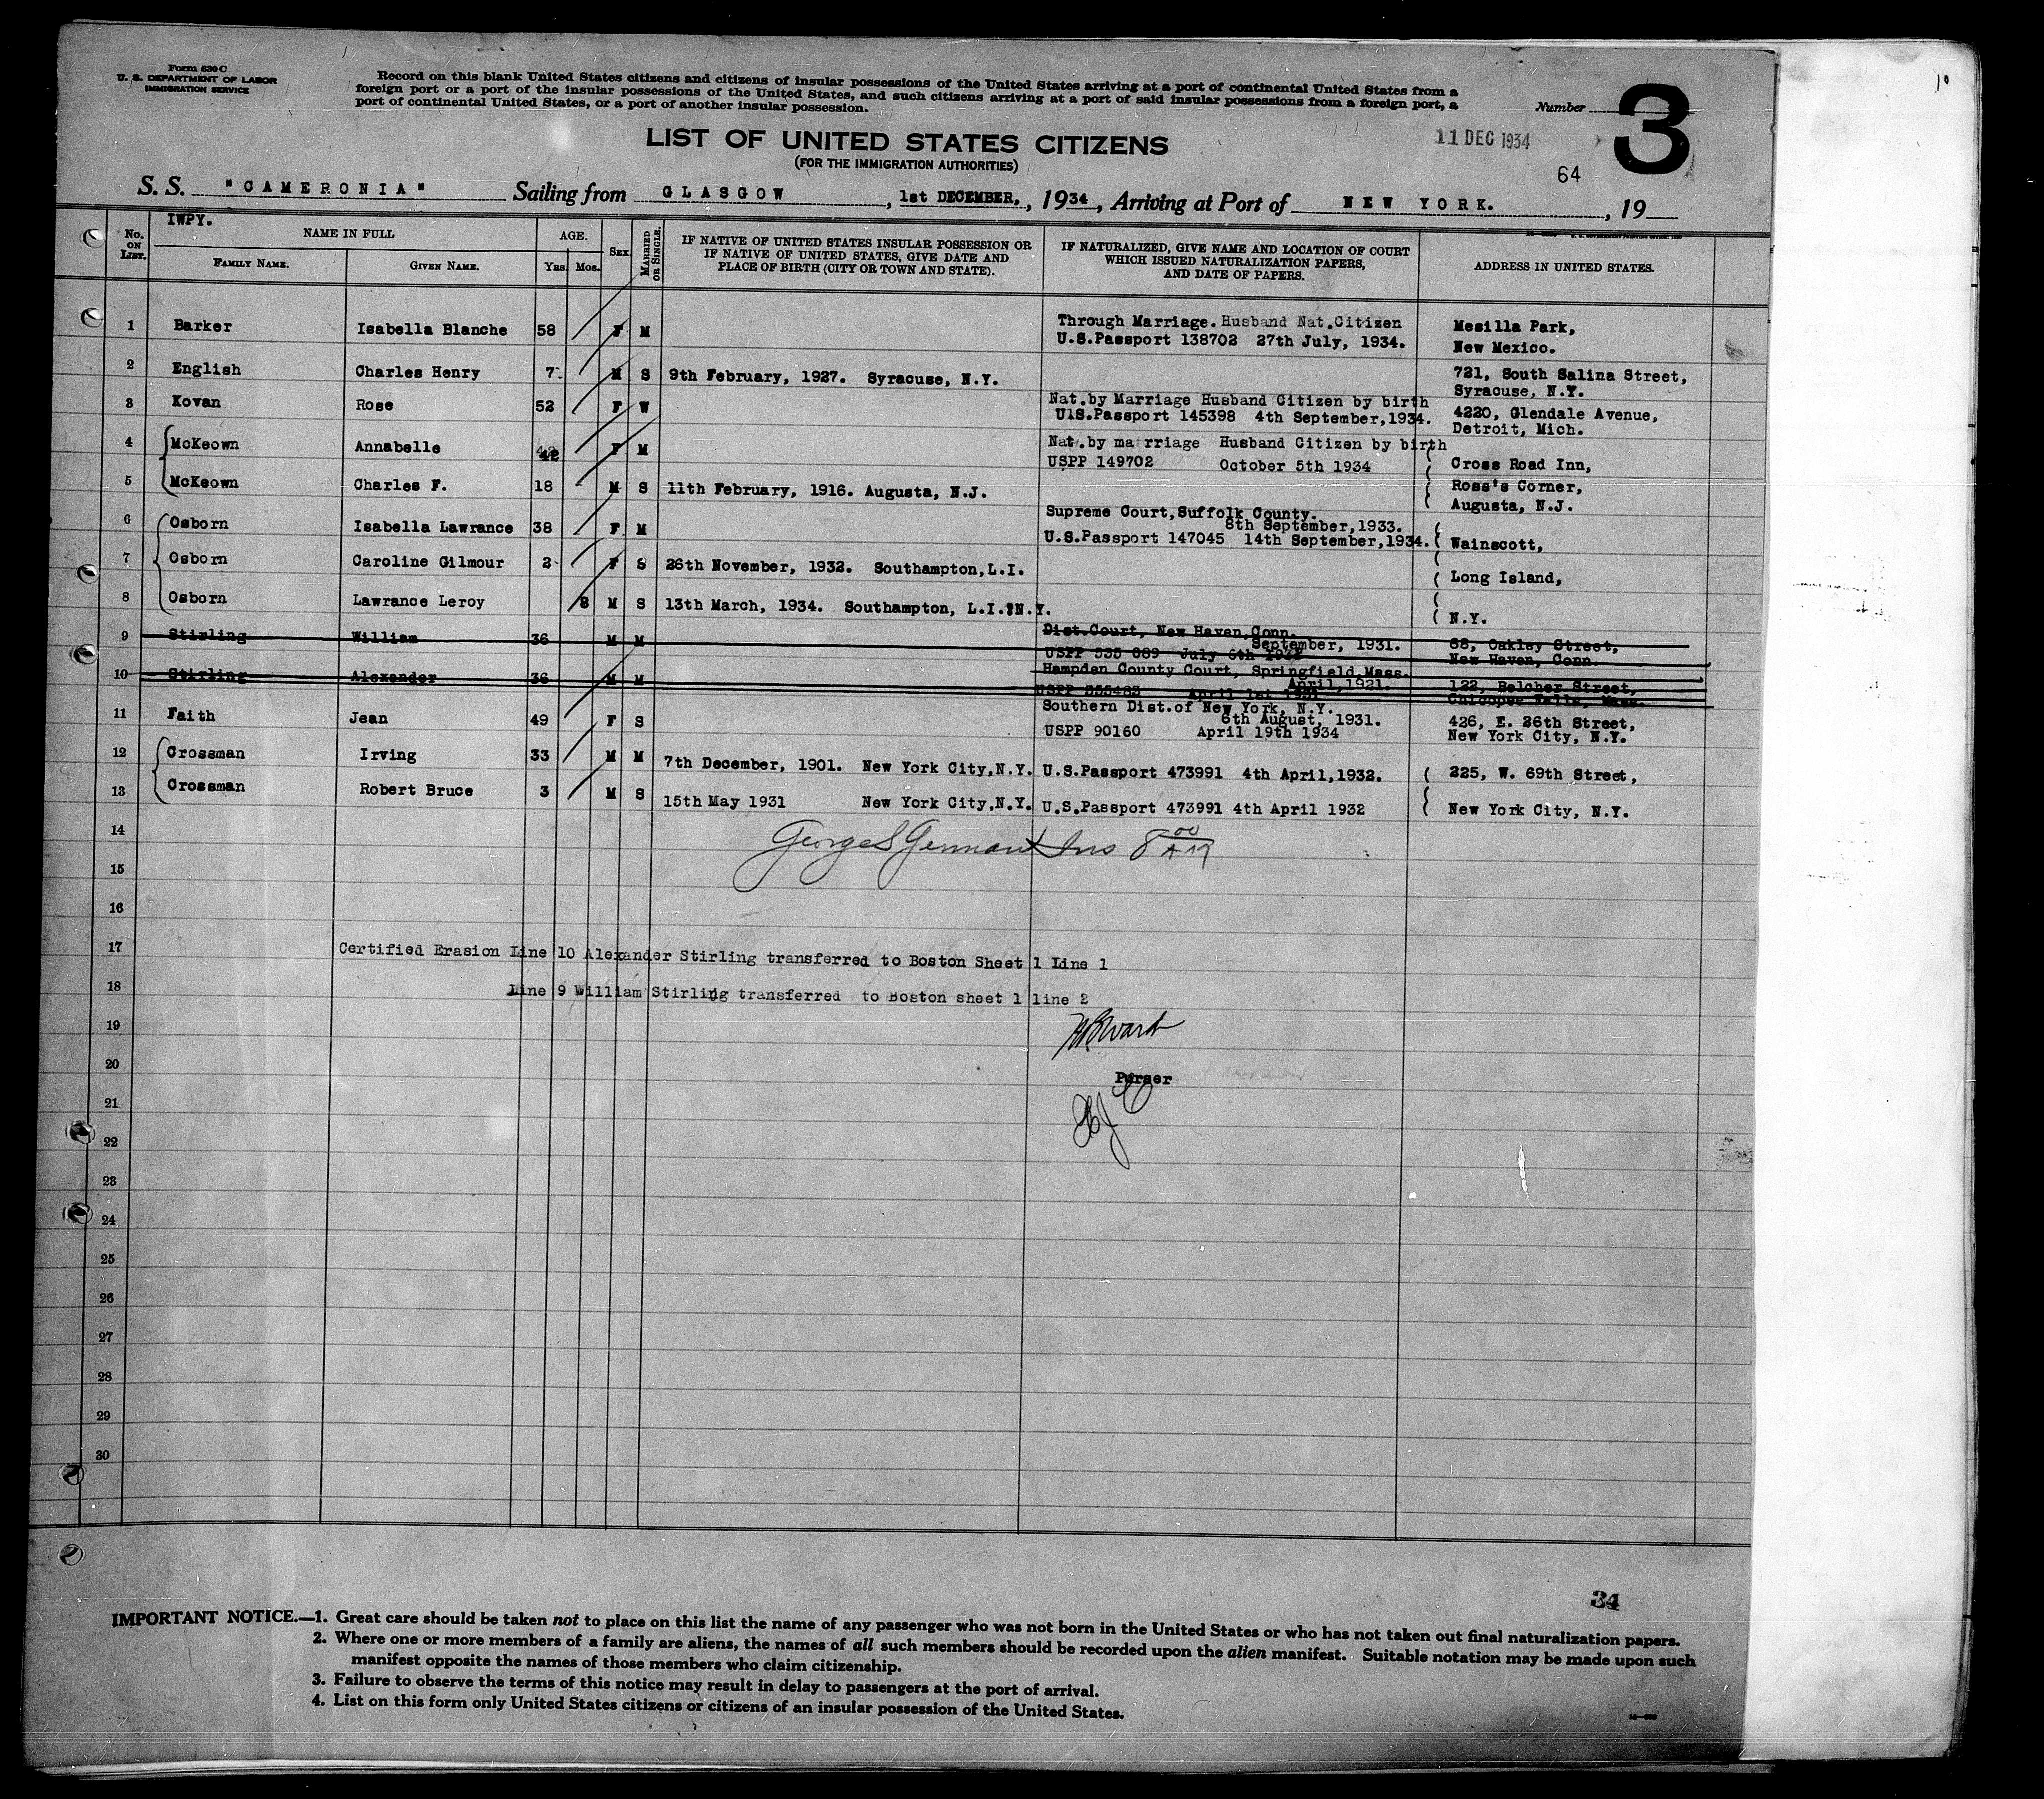 Form 630 C
U. S. DEPARTMENT OF LABOR
IMMIGRATION SERVICE
Record on this blank United States citizens and citizens of insular possessions of the United States arriving at a port of continental United States from a
foreign port or a port of the insular possessions of the United States, and such citizens arriving at a port of said insular possessions from a foreign port, a
port of continental United States, or a port of another insular possession.
Number 3
LIST OF UNITED STATES CITIZENS
(FOR THE IMMIGRATION AUTHORITIES)
11 DEC 1934
64
S. S. "CAMERONIA" Sailing from GLASGOW, 1st DECEMBER, 1934, Arriving at Port of NEW YORK. , 19
IWPY.
No. ON LIST.
NAME IN FULL
FAMILY NAME.
GIVEN NAME.
AGE.
Yrs.
Mos.
SEX
MARRIED OR SINGLE.
IF NATIVE OF UNITED STATES INSULAR POSSESSION OR
IF NATIVE OF UNITED STATES, GIVE DATE AND
PLACE OF BIRTH (CITY OR TOWN AND STATE).
IF NATURALIZED, GIVE NAME AND LOCATION OF COURT
WHICH ISSUED NATURALIZATION PAPERS,
AND DATE OF PAPERS.
ADDRESS IN UNITED STATES.
1 Barker Isabella Blanche 58 F M Through Marriage. Husband Nat.Citizen
U.S.Passport 138702 27th July, 1934. Mesilla Park,
New Mexico.
2 English Charles Henry 7 M S 9th February, 1927. Syracuse, N.Y. 721, South Salina Street,
Syracuse, N.Y.
3 Kovan Rose 52 F W Nat.by Marriage Husband Citizen by birth
U1S.Passport 145398 4th September,1934. 4220, Glendale Avenue,
Detroit, Mich.
4 McKeown Annabelle 42 F M Nat.by marriage Husband Citizen by birth
USPP 149702 October 5th 1934 Cross Road Inn,
5 McKeown Charles F. 18 M S 11th February, 1916. Augusta, N.J. Ross's Corner,
Augusta, N.J.
6 Osborn Isabella Lawrance 38 F M Supreme Court,Suffolk County.
8th September,1933.
U.S.Passport 147045 14th September,1934. Wainscott,
7 Osborn Caroline Gilmour 2 F S 26th November, 1932. Southampton,L.I. Long Island,
8 Osborn Lawrance Leroy 8 M S 13th March, 1934. Southampton, L.I.?N.Y. N.Y.
9 Stirling William 36 M M Dist.Court, New Haven,Conn.
September, 1931.
USPP 535 089 July 6th 68, Oakley Street,
New Haven, Conn.
10 Stirling Alexander 36 M M Hampden County Court, Springfield,Mass.
April,1921.
USPP 555483 April 1st 1931 122, Belcher Street,
Chicopee Falls, Mass.
11 Faith Jean 49 F S Southern Dist.of New York, N.Y.
6th August, 1931.
USPP 90160 April 19th 1934 426, E. 26th Street,
New York City, N.Y.
12 Crossman Irving 33 M M 7th December, 1901. New York City,N.Y. U.S.Passport 473991 4th April,1932. 225, W. 69th Street,
13 Crossman Robert Bruce 3 M S 15th May 1931 New York City,N.Y. U.S.Passport 473991 4th April 1932 New York City, N.Y.
14
George S German Ins 8 00
15
16
17 Certified Erasion Line 10 Alexander Stirling transferred to Boston Sheet 1 Line 1
18 Line 9 William Stirling transferred to Boston sheet 1 line 2
19
20 Purser
21
22
23
24
25
26
27
28
29
30
34
IMPORTANT NOTICE.—1. Great care should be taken not to place on this list the name of any passenger who was not born in the United States or who has not taken out final naturalization papers.
2. Where one or more members of a family are aliens, the names of all such members should be recorded upon the alien manifest. Suitable notation may be made upon such
manifest opposite the names of those members who claim citizenship.
3. Failure to observe the terms of this notice may result in delay to passengers at the port of arrival.
4. List on this form only United States citizens or citizens of an insular possession of the United States.